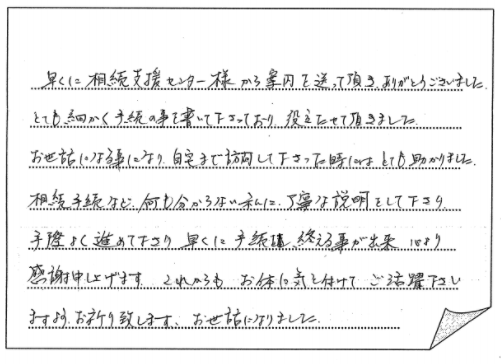 早くに相続支援センター様から案内を送って頂き、ありがとうございました。
とても細かく手続の事を書いて下さっており、役立たせて頂きました。
お世話になる事になり、自宅まで訪問して下さった時にはとても助かりました。
相続手続など、何も分からない私に、丁寧な説明をして下さり
手際よく進めて下さり 早くに手続 終える事が出来 心より
感謝申し上げます。これからも お体に気を付けて ご活躍下さい
ますようお祈り致します。お世話になりました。